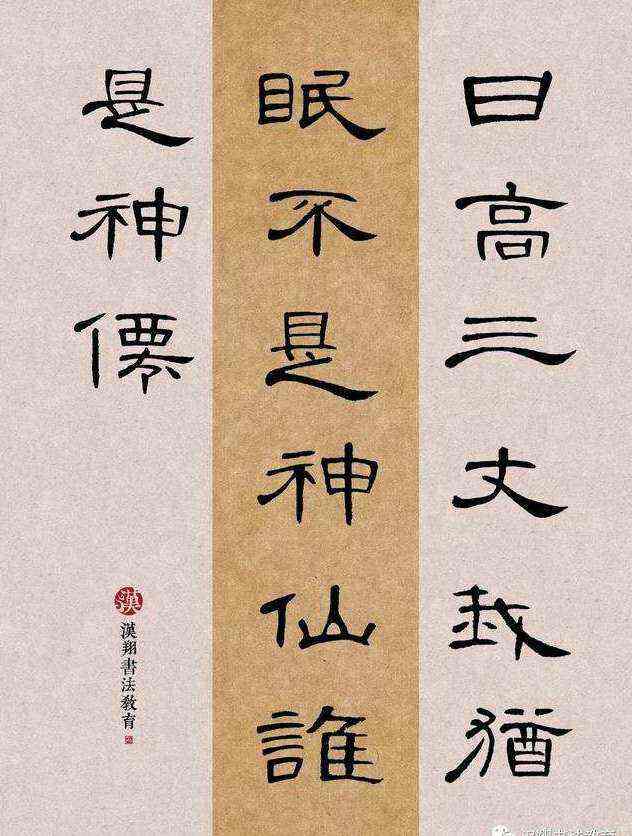 日高三丈我猶
眠不是神仙誰
是神僊
漢
漢翔書法教育